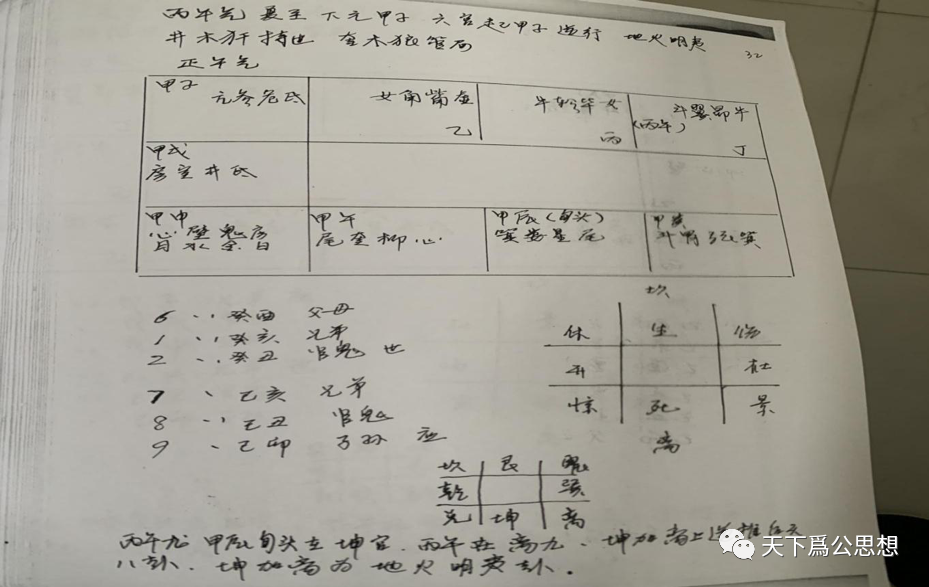 丙午气 夏至 下元甲子 六宫起甲子逆行 地火明夷
井木犴持世 奎木狼管局
32
正午气
甲子
亢参危氐
女角觜虚
乙
牛轸毕女
丙
斗翼昴牛
(丙午)
丁
甲戌
房室井氐
甲申
心壁鬼房
月水金日
甲午
尾奎柳心
甲辰(旬头)
箕娄星尾
甲寅
斗胃张箕
6 癸酉 父母
1 癸亥 兄弟
2 癸丑 官鬼 世
7 己亥 兄弟
8 己丑 官鬼
9 己卯 子孙 应
坎
休 生 伤
开 杜
惊 死 景
离
坎 艮 震
乾 巽
兑 坤 离
丙午九 甲辰旬头在坤宫. 丙午在离九. 坤加离上逆推
八卦. 坤加离为地火明夷卦.
天下爲公思想